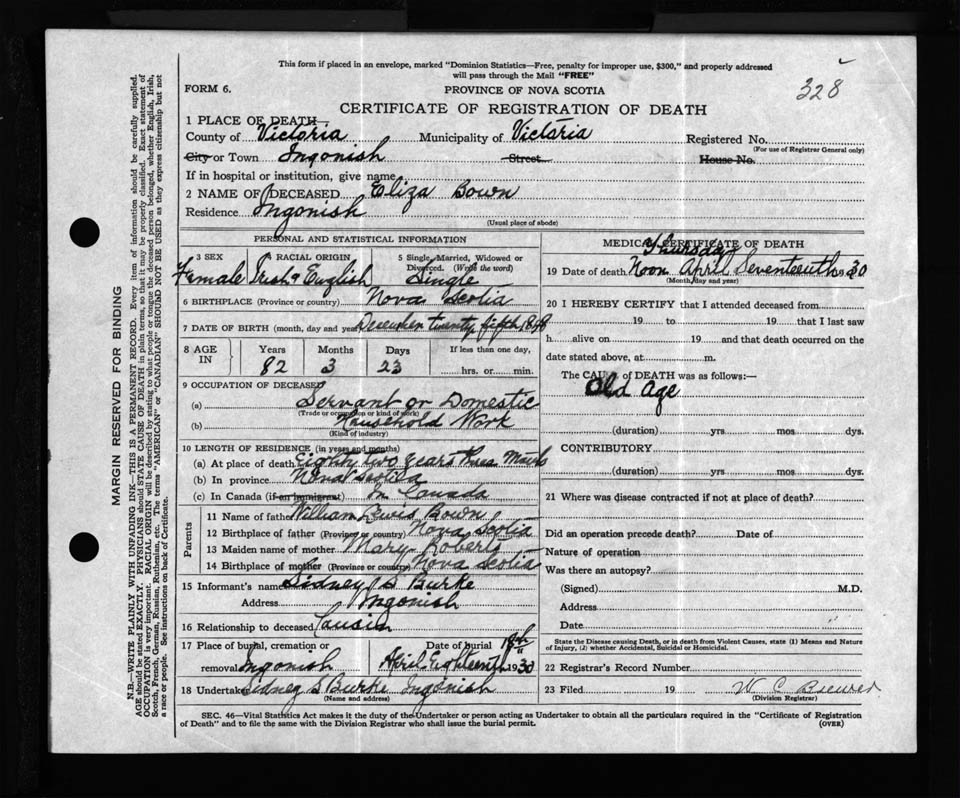 This form if placed in an envelope, marked "Dominion Statistics—Free, penalty for improper use, $300," and properly addressed
will pass through the Mail "FREE"
328
FORM 6. PROVINCE OF NOVA SCOTIA
CERTIFICATE OF REGISTRATION OF DEATH
1 PLACE OF DEATH
County of Victoria Municipality of Victoria Registered No.
(For use of Registrar General only)
City or Town Ingonish Street House No.
If in hospital or institution, give name
2 NAME OF DECEASED Eliza Bown
Residence Ingonish
(Usual place of abode)
PERSONAL AND STATISTICAL INFORMATION
3 SEX 4 RACIAL ORIGIN 5 Single, Married, Widowed or Divorced. (Write the word)
Female Irish & English Single
6 BIRTHPLACE (Province or country) Nova Scotia
7 DATE OF BIRTH (month, day and year) December twenty fifth 1848
8 AGE IN Years Months Days If less than one day,
82 3 23 hrs. or min.
9 OCCUPATION OF DECEASED
(a) Servant or Domestic
(Trade or occupation or kind of work)
(b) Household Work
(Kind of industry)
10 LENGTH OF RESIDENCE (in years and months)
(a) At place of death Eighty two years three Months
(b) In province Nova Scotia
(c) In Canada (if an immigrant) In Canada
Parents
11 Name of father William Lewis Bown
12 Birthplace of father (Province or country) Nova Scotia
13 Maiden name of mother Mary Roberts
14 Birthplace of mother (Province or country) Nova Scotia
15 Informant's name Sidney S Burke
Address Ingonish
16 Relationship to deceased Cousin
17 Place of burial, cremation or Date of burial 18th
removal Ingonish April Eighteenth 1930
18 Undertaker Sidney S Burke Ingonish
(Name and address)
MEDICAL CERTIFICATE OF DEATH
Thursday
19 Date of death Noon April Seventeenth 1930
(Month, day and year)
20 I HEREBY CERTIFY that I attended deceased from
19 to 19 that I last saw
h alive on 19 and that death occurred on the
date stated above, at m.
The CAUSE OF DEATH was as follows:—
Old Age
(duration) yrs mos dys.
CONTRIBUTORY
(duration) yrs mos dys.
21 Where was disease contracted if not at place of death?
Did an operation precede death? Date of
Nature of operation
Was there an autopsy?
(Signed) M.D.
Address
Date
State the Disease causing Death, or in death from Violent Causes, state (1) Means and Nature
of Injury, (2) whether Accidental, Suicidal or Homicidal.
22 Registrar's Record Number
23 Filed 19 W C Brewer
(Division Registrar)
SEC. 46—Vital Statistics Act makes it the duty of the Undertaker or person acting as Undertaker to obtain all the particulars required in the "Certificate of Registration
of Death" and to file the same with the Division Registrar who shall issue the burial permit. (OVER)
MARGIN RESERVED FOR BINDING
N.B.—WRITE PLAINLY WITH UNFADING INK—THIS IS A PERMANENT RECORD. Every item of information should be carefully supplied.
AGE should be stated EXACTLY. PHYSICIANS should STATE CAUSE OF DEATH in plain terms, so that it may be properly classified. Exact statement of
OCCUPATION is very important. RACIAL ORIGIN will be described by stating to what people or tongue the deceased person belonged, whether English, Irish,
Scotch, French, German, Russian, Ruthenian, etc. The terms "AMERICAN" or "CANADIAN" SHOULD NOT BE USED as they express citizenship but not
a race or people. See instructions on back of Certificate.